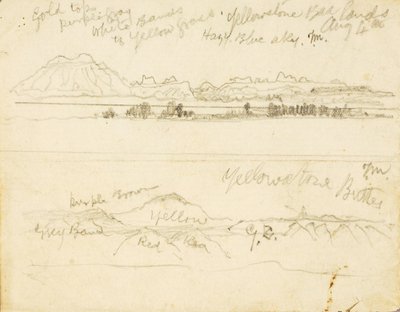 Gold tops
purple gray
White Bands
is Yellow grass
Yellowstone Bad Lands
Aug 4th
Hazy Blue sky. M.
M.
Yellowstone Buttes
purple Brown
Yellow
Grey Band
Red